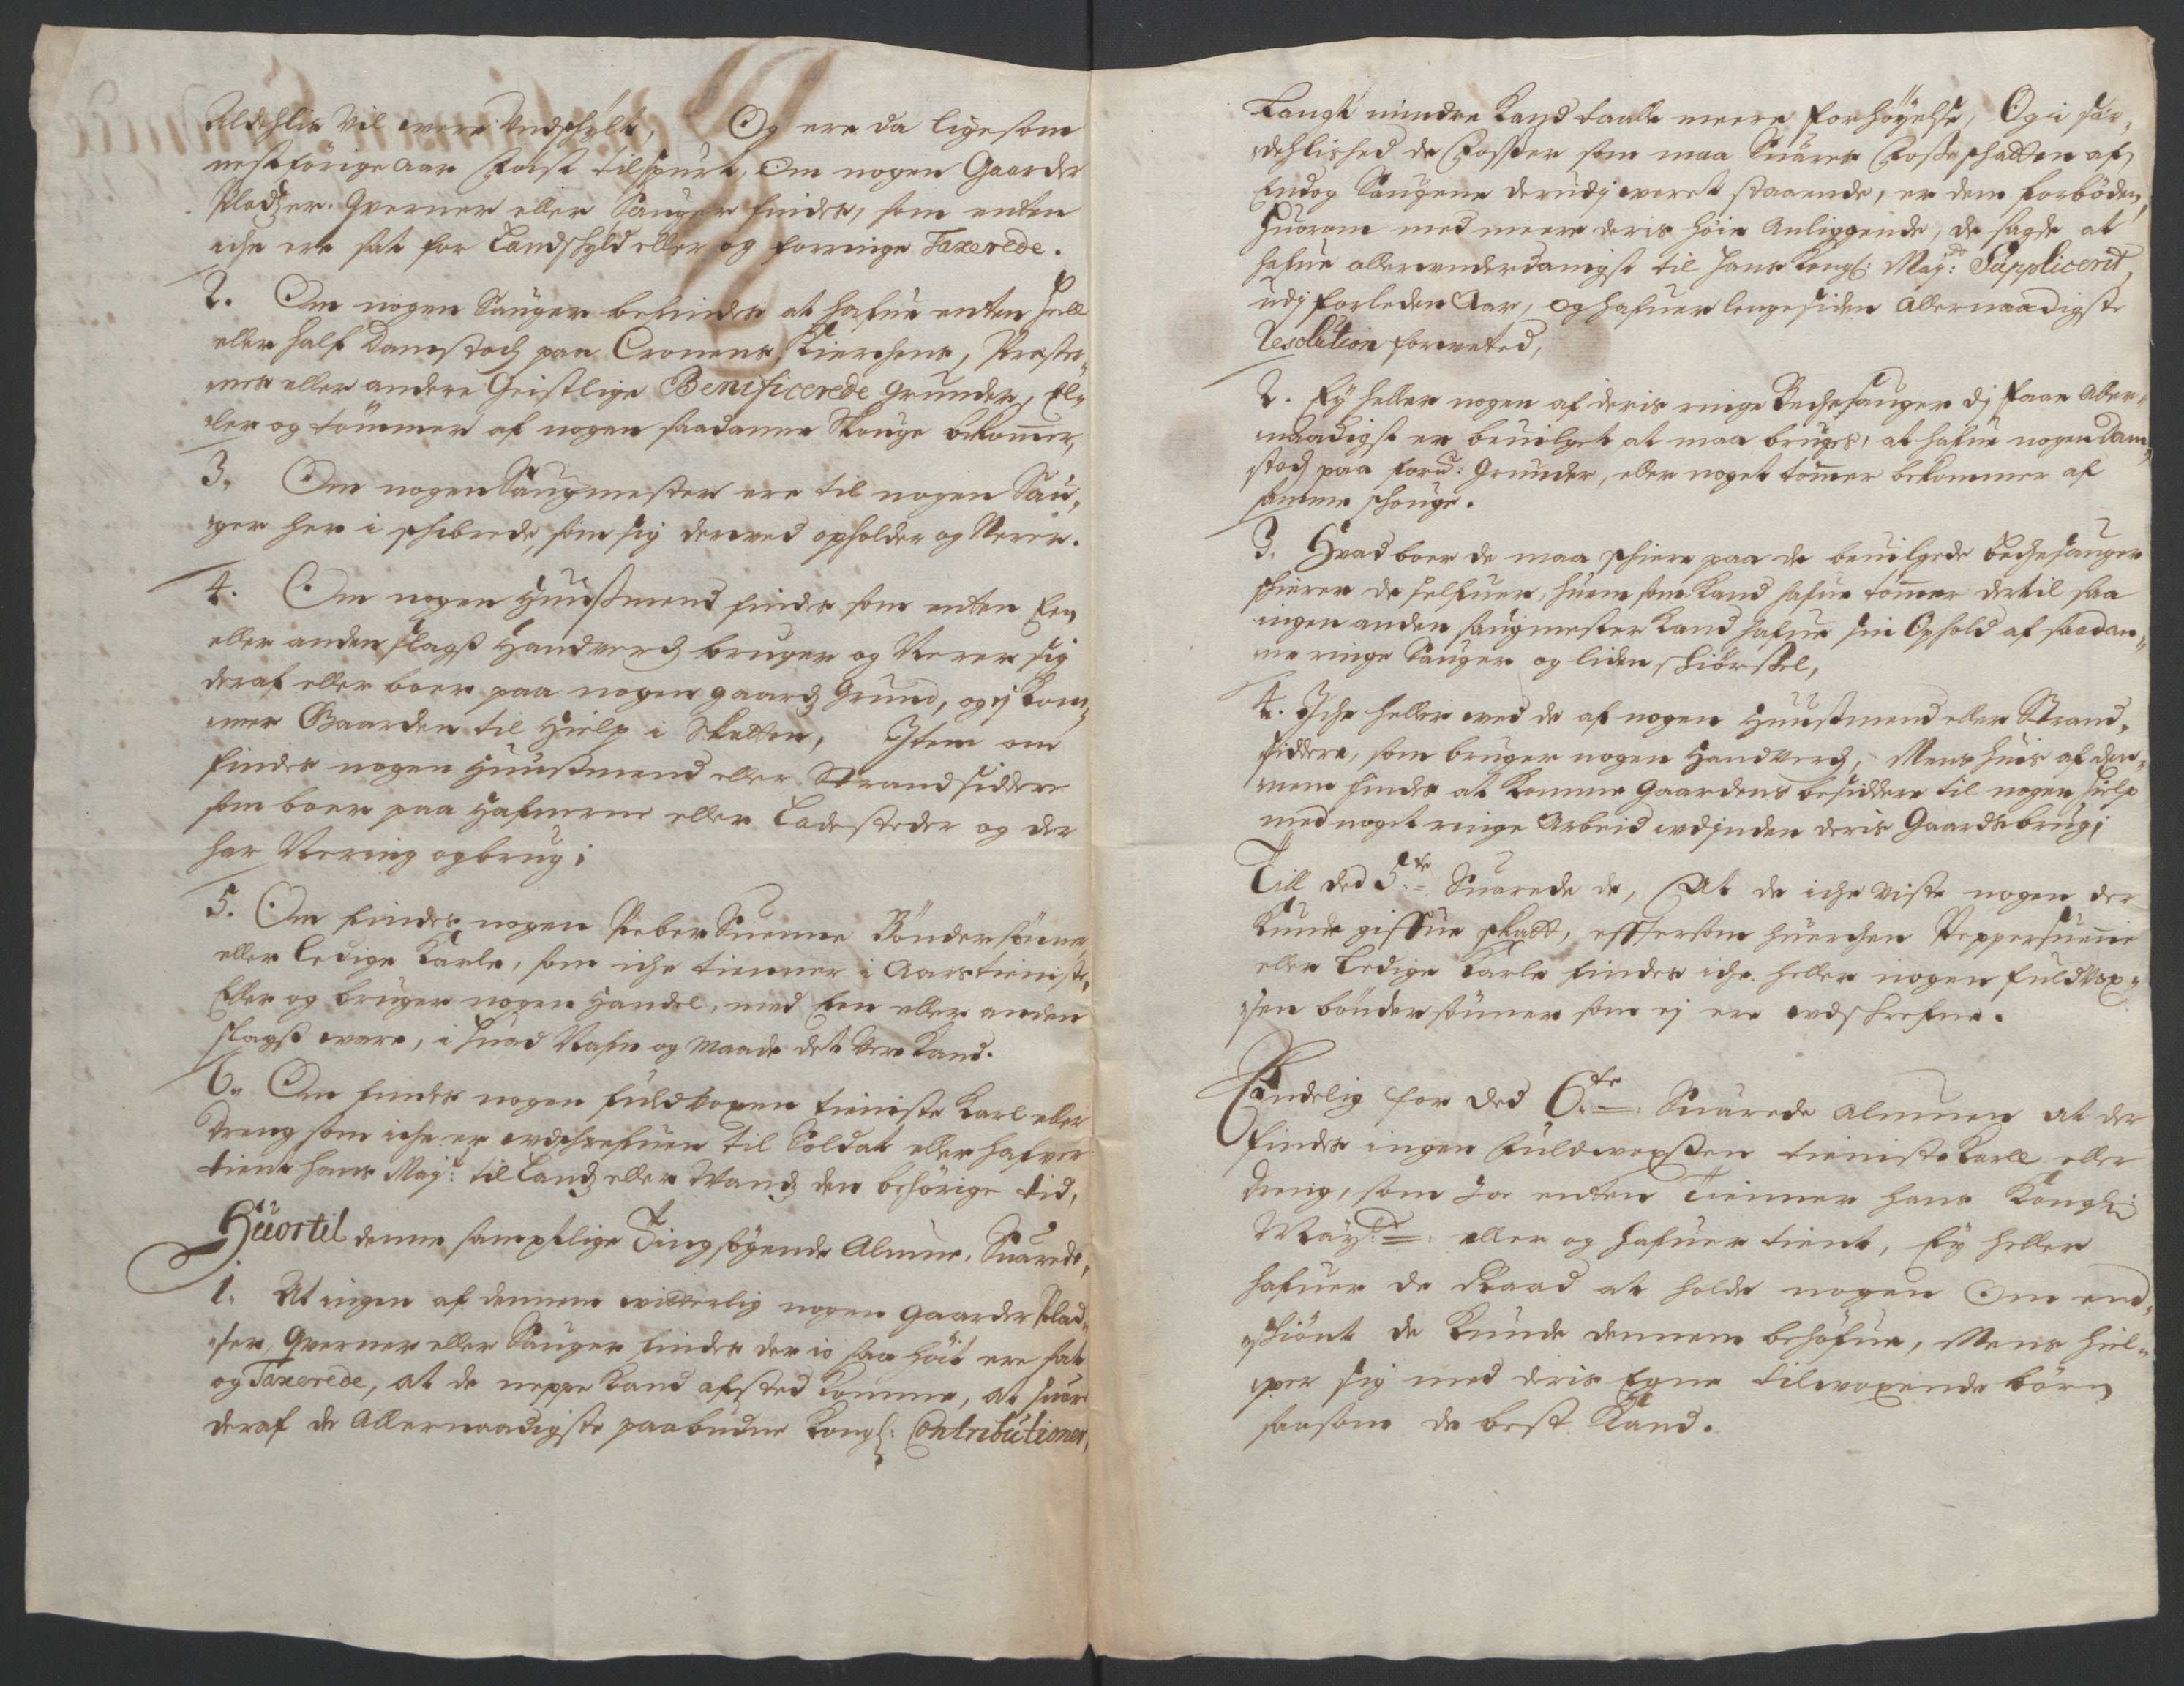 Aldehlis vil were Undschylt, Og ere da ligesom
nestforige Aar Forst tilspurt, Om nogen Gaarder
Pladtzer. Qverner eller Sauger findes, som enten
iche ere sat for Landschyld eller og forringe Taxerede.
2. Om nogen Sauger befindes at hafue enten heell
eller half Damstoch paa Cronens, Kierchens, Præster¬
nes eller andere Geistlige Benificerede grunder, El¬
ler og tömmer af nogen saadanne Skouge bekommer,
3. Om nogen Saugmester ere til nogen Sau¬
ger her i schibrede, som sig derved opholder og Nerer.
4. Om nogen Huusmend findes som enten Een
eller anden slags Handverch bruger og Nerer sig
deraf eller boer paa nogen gaards Grund, og ej kom¬
mer Gaarden til Hielp i Skatten, Item om
findes nogen Huusmend eller Strandsiddere
som boer paa Hafnerne eller Ladesteder og der
har Nering og brug;
5. Om findes nogen PeberSuenne Bönder sönner
eller ledige Karle, som iche tienner i Aarstienniste,
Eller og bruger nogen Handel, med Een eller anden
slags ware, i huad Nafn og Maade det Vere Kand.
6. Om findes nogen fuldvoxen tieniste Karl eller
Dreng som iche er udschrefuen til Soldat eller hafver
tient hans May:t til Lands eller Vands den behörige tid,
Huortil denne samptlige Tingsögende Almue, Suarede,
1. At ingen af dennem witterlig nogen gaarder Plad¬
ser, Qverner eller Sauger findes der io saa höit ere sat
og Taxerede, at de neppe kand afsted komme, at suare
deraf de Allernaadigste paabudne Kongl: Contributioner,
Langt mindre Kand taalle meere forhöyelse, Og i sær¬
dehlished de Fosser som maa Suares Fosseschatten af
Endog Saugene derudj werret staaende, er dem forböden,
Huorom med meere deris höie Anliggende, de sagde at
hafue allerunderdanigst til Hans Kongl: May:tt Supplicerit,
udj forleden Aar, og hafuer lenge siden Allernaadigste
Resolution forvented,
2. Ey heller nogen af deris ringe Bechesauger dj faae Aller¬
naadigst er beuilget at maa bruges, at hafue nogen Dam¬
stoch paa for:ne Grunder, eller noget tömmer bekommer af
samme schouge.
3. Hvad boer de maa schiere paa de beuilgede Bechesauger
schierer de selfuer, huem som kand hafue tömmer dertil saa
ingen anden saugmester kand hafue sin Ophold af saadan¬
ne ringe Sauger og liden schiörsel,
4. Iche heller wed de af nogen Huusmend eller Strand¬
siddere, som bruger nogen Handverch, Mens huis af den¬
nem findes at komme Gaardens besiddere til nogen hielp
med noget ringe Arbeid udjnden deris Gaardsbrug;
Till ded 5:te Suarede de, At de iche viste nogen der
kunde gifue skatt, effttersom huerchen Peppersuenne
eller ledige Karle findes iche heller nogen fuldvox¬
sen bönder sönner som ej ere udschrefne.
Endelig for ded 6:te Suarede Almuen at der
findes ingen fuldvoxsen tieniste Karll eller
dreng, som Jo enten Tienner hans Kongl:
May:tt eller og hafuer tient, Ey heller
hafuer de Raad at holde nogen Om end¬
schiönt de kunde dennem behöfue, Mens hiel¬
per sig med deris Egne tilvoxende börn
saasom de best Kand.